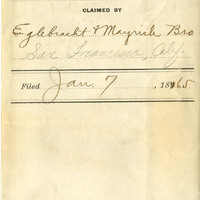 CLAIMED BY
Eglebracht & Mayrisch Bro
San Francisco, Calf.
Filed Jan. 7, 1865